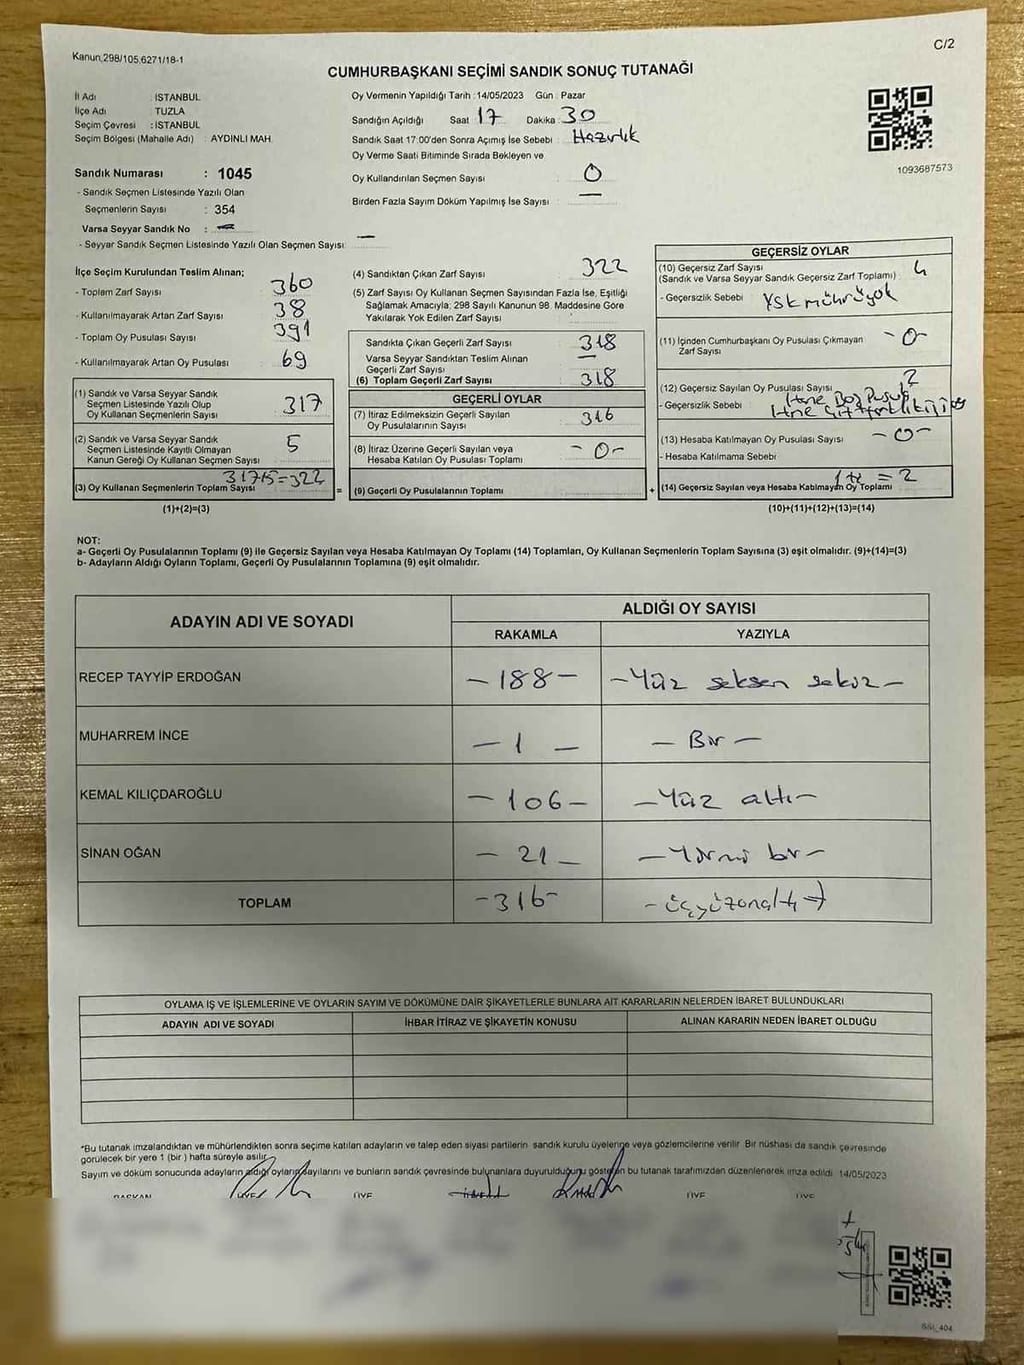 Kanun,298/105,6271/18-1
C/2
CUMHURBAŞKANI SEÇİMİ SANDIK SONUÇ TUTANAĞI
İl Adı : İSTANBUL
İlçe Adı : TUZLA
Seçim Çevresi : İSTANBUL
Seçim Bölgesi (Mahalle Adı) : AYDINLI MAH
Sandık Numarası : 1045
- Sandık Seçmen Listesinde Yazılı Olan
Seçmenlerin Sayısı : 354
Varsa Seyyar Sandık No : —
- Seyyar Sandık Seçmen Listesinde Yazılı Olan Seçmen Sayısı: —
Oy Vermenin Yapıldığı Tarih :14/05/2023 Gün : Pazar
Sandığın Açıldığı Saat 17 Dakika 30
Sandık Saat 17:00'den Sonra Açımış İse Sebebi : Hazırlık
Oy Verme Saati Bitiminde Sırada Bekleyen ve
Oy Kullandırılan Seçmen Sayısı : 0
Birden Fazla Sayım Döküm Yapılmış İse Sayısı : —
1093687573
İlçe Seçim Kurulundan Teslim Alınan;
- Toplam Zarf Sayısı : 360
- Kullanılmayarak Artan Zarf Sayısı : 38
- Toplam Oy Pusulası Sayısı : 391
- Kullanılmayarak Artan Oy Pusulası : 69
(1) Sandık ve Varsa Seyyar Sandık
Seçmen Listesinde Yazılı Olup
Oy Kullanan Seçmenlerin Sayısı : 317
(2) Sandık ve Varsa Seyyar Sandık
Seçmen Listesinde Kayıtlı Olmayan
Kanun Gereği Oy Kullanan Seçmen Sayısı : 5
317+5=322
(3) Oy Kullanan Seçmenlerin Toplam Sayısı
(1)+(2)=(3)
(4) Sandıktan Çıkan Zarf Sayısı : 322
(5) Zarf Sayısı Oy Kullanan Seçmen Sayısından Fazla İse, Eşitliği
Sağlamak Amacıyla: 298 Sayılı Kanunun 98. Maddesine Göre
Yakılarak Yok Edilen Zarf Sayısı :
Sandıkta Çıkan Geçerli Zarf Sayısı : 318
Varsa Seyyar Sandıktan Teslim Alınan
Geçerli Zarf Sayısı : —
(6) Toplam Geçerli Zarf Sayısı : 318
GEÇERLİ OYLAR
(7) İtiraz Edilmeksizin Geçerli Sayılan
Oy Pusulalarının Sayısı : 316
(8) İtiraz Üzerine Geçerli Sayılan veya
Hesaba Katılan Oy Pusulası Toplamı : -0-
= (9) Geçerli Oy Pusulalarının Toplamı :
GEÇERSİZ OYLAR
(10) Geçersiz Zarf Sayısı : 4
(Sandık ve Varsa Seyyar Sandık Geçersiz Zarf Toplamı)
- Geçersizlik Sebebi : YSK mührü yok
(11) İçinden Cumhurbaşkanı Oy Pusulası Çıkmayan
Zarf Sayısı : -0-
(12) Geçersiz Sayılan Oy Pusulası Sayısı : 2
- Geçersizlik Sebebi
(13) Hesaba Katılmayan Oy Pusulası Sayısı : -0-
- Hesaba Katılmama Sebebi :
+ (14) Geçersiz Sayılan veya Hesaba Katılmayan Oy Toplamı = 2
(10)+(11)+(12)+(13)=(14)
NOT:
a- Geçerli Oy Pusulalarının Toplamı (9) ile Geçersiz Sayılan veya Hesaba Katılmayan Oy Toplamı (14) Toplamları, Oy Kullanan Seçmenlerin Toplam Sayısına (3) eşit olmalıdır. (9)+(14)=(3)
b- Adayların Aldığı Oyların Toplamı, Geçerli Oy Pusulalarının Toplamına (9) eşit olmalıdır.
ADAYIN ADI VE SOYADI
ALDIĞI OY SAYISI
RAKAMLA YAZIYLA
RECEP TAYYİP ERDOĞAN -188- -Yüz seksen sekiz-
MUHARREM İNCE -1- -Bir-
KEMAL KILIÇDAROĞLU -106- -Yüz altı-
SİNAN OĞAN -21- -Yirmi bir-
TOPLAM -316- -üçyüzonaltı-
OYLAMA İŞ VE İŞLEMLERİNE VE OYLARIN SAYIM VE DÖKÜMÜNE DAİR ŞİKAYETLERLE BUNLARA AİT KARARLARIN NELERDEN İBARET BULUNDUKLARI
ADAYIN ADI VE SOYADI İHBAR İTİRAZ VE ŞİKAYETİN KONUSU ALINAN KARARIN NEDEN İBARET OLDUĞU
*Bu tutanak imzalandıktan ve mühürlendikten sonra seçime katılan adayların ve talep eden siyasi partilerin sandık kurulu üyelerine veya gözlemcilerine verilir. Bir nüshası da sandık çevresinde
görülecek bir yere 1 (bir) hafta süreyle asılır.
Sayım ve döküm sonucunda adayların aldığı oyların sayılarını ve bunların sandık çevresinde bulunanlara duyurulduğunu gösteren bu tutanak tarafımızdan düzenlenerek imza edildi. 14/05/2023
BAŞKAN ÜYE ÜYE ÜYE ÜYE